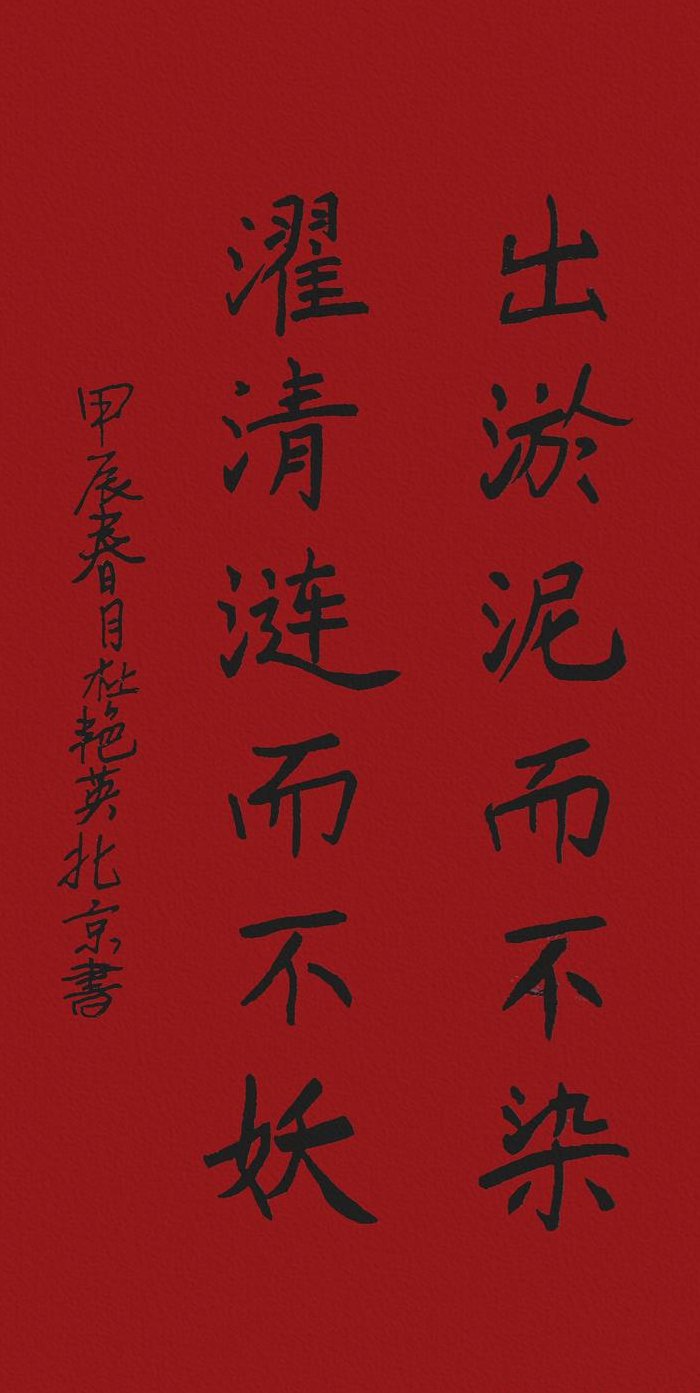 出淤泥而不染
濯清涟而不妖
甲辰春月杜艳英北京書